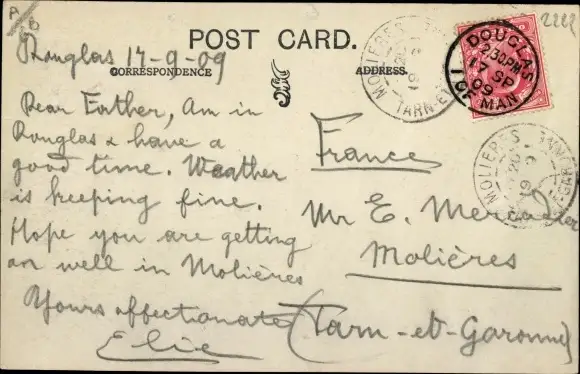 A
B
2222
Douglas 17-9-09
POST CARD.
CORRESPONDENCE
ADDRESS.
Dear Father, Am in
Douglas & have a
good time. Weather
is keeping fine.
Hope you are getting
on well in Molières
Yours affectionate
Elie
France
Mr E. Mercadier
Molières
(Tarn-et-Garonne)
DOUGLAS
2.30PM
17 SP
09
I OF MAN
MOLIERES
TARN-ET-
MOLIERES